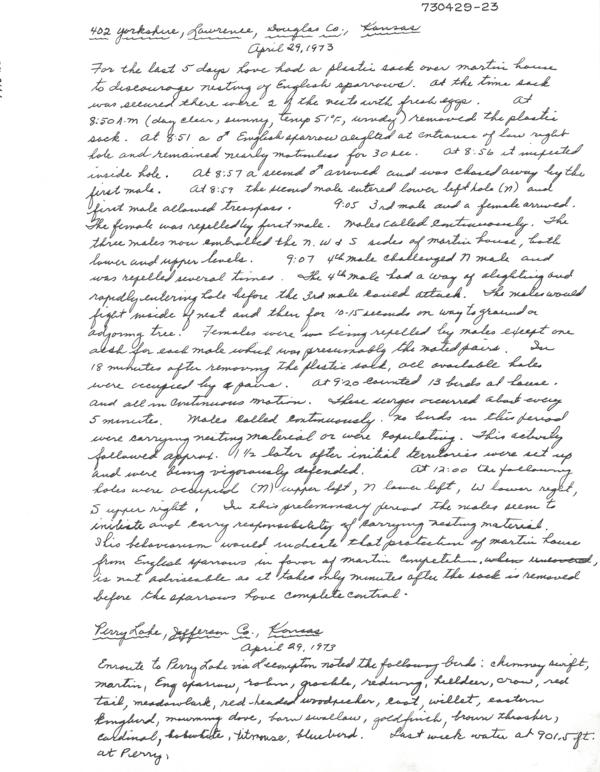 730429-23
402 Yorkshire, Lawrence, Douglas Co., Kansas
April 29, 1973
For the last 5 days have had a plastic sack over martin house
to discourage nesting of English sparrows. At the time sack
was secured there were 2 of the nests with fresh eggs. At
8:50 A.M (day clear, sunny, temp 51°F, windy) removed the plastic
sack. At 8:51 a ♂ English sparrow alighted at entrance of low right
hole and remained nearly motionless for 30 sec. At 8:56 it inspected
inside hole. At 8:57 a second ♂ arrived and was chased away by the
first male. At 8:59 the second male entered lower left hole (N) and
first male allowed trespass. 9:05 3rd male and a female arrived.
The female was repelled by first male. Males called continuously. The
three males now controlled the N. W & S sides of martin house, both
lower and upper levels. 9:07 4th male challenged N male and
was repelled several times. The 4th male had a way of alighting and
rapidly entering hole before the 3rd male could attack. The males would
fight inside of nest and then for 10-15 seconds on way to ground or
adjoing tree. Females were being repelled by males except one
each for each male which was presumably the mated pairs. In
18 minutes after removing the plastic sack, all available holes
were occupied by pairs. At 9:20 counted 13 birds at house.
and all in continuous motion. These surges occurred about every
5 minutes. Males called continuously. No birds in this period
were carrying nesting material or were copulating. This activity
followed approx. 1 1/2 later after initial territories were set up
and were being vigorously defended. At 12:00 the following
holes were occupied (N) upper left, N lower left, W lower right,
S upper right. In this preliminary period the males seem to
initiate and carry responsibility of carrying nesting material.
This behaviorism would indicate that protection of martin house
from English sparrows in favor of martin competition,
is not adviseable as it takes only minutes after the sack is removed
before the sparrows have complete control.
Perry Lake, Jefferson Co., Kansas
April 29, 1973
Enroute to Perry Lake via Lecompton noted the following birds: chimney swift,
martin, Eng sparrow, robin, grackle, redwing, killdeer, crow, red
tail, meadowlark, red-headed woodpecker, coot, willet, eastern
Kingbird, mourning dove, barn swallow, goldfinch, brown thrasher,
cardinal, bobwhite, titmouse, bluebird. Last week water at 901.5 ft.
at Perry.